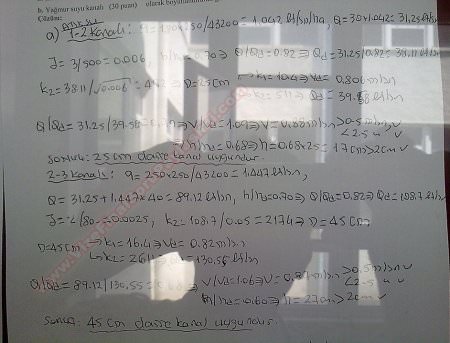 b. Yağmur suyu kanalı (30 puan) olarak
Çözüm:
a) ATIKSU
1-2 Kanalı: 180x250/43200 = 1.042 lt/sn/ha, Q=30x1.042=31.25 lt/sn
J=3/500=0.006, h/h=0.70⇒Q/Qd=0.82⇒Qd=31.25/0.82=38.11 lt/sn
k2=38.11/√0.006=492⇒D=25cm k1=10.4⇒Vd=0.806 m/sn
k2=511⇒Qd=39.58 lt/sn
Q/Qd=31.25/39.58=0.79⇒V/Vd=1.09⇒V=0.88 m/sn >0.5 m/sn ✓
<2.5 " ✓
h/h=0.68⇒h=0.68x25=17cm>2cm ✓
SONUÇ: 25 cm daire kanal uygundur.
2-3 Kanalı: q=250x250/43200=1.447 lt/sn
Q=31.25+1.447x40=89.12 lt/sn, h/h=0.70⇒Q/Qd=0.82⇒Qd=108.7 lt/sn
J=2/80=0.0025, k2=108.7/0.05=2174⇒D=45cm
D=45cm k1=16.4⇒Vd=0.82 m/sn
k2=2611 130.55 lt/sn
Q/Qd=89.12/130.55=0.68⇒V/Vd=1.06⇒V=0.87 m/sn >0.5 m/sn ✓
<2.5 " ✓
h/h=0.60⇒h=27cm>2cm ✓
SONUÇ: 45 cm daire kanal uygundur.